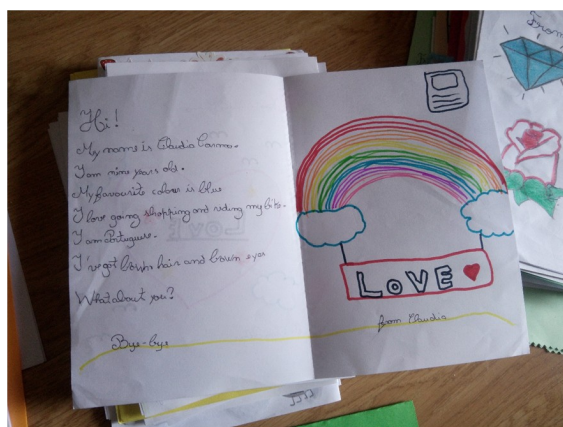 Hi!
My name is Claudia
I am nine years old.
My favourite colour is blue
I love going shopping and riding my bike.
I am Portuguese.
I've got brown hair and brown eyes
What about you?
Bye-bye
LOVE
from Claudia
From